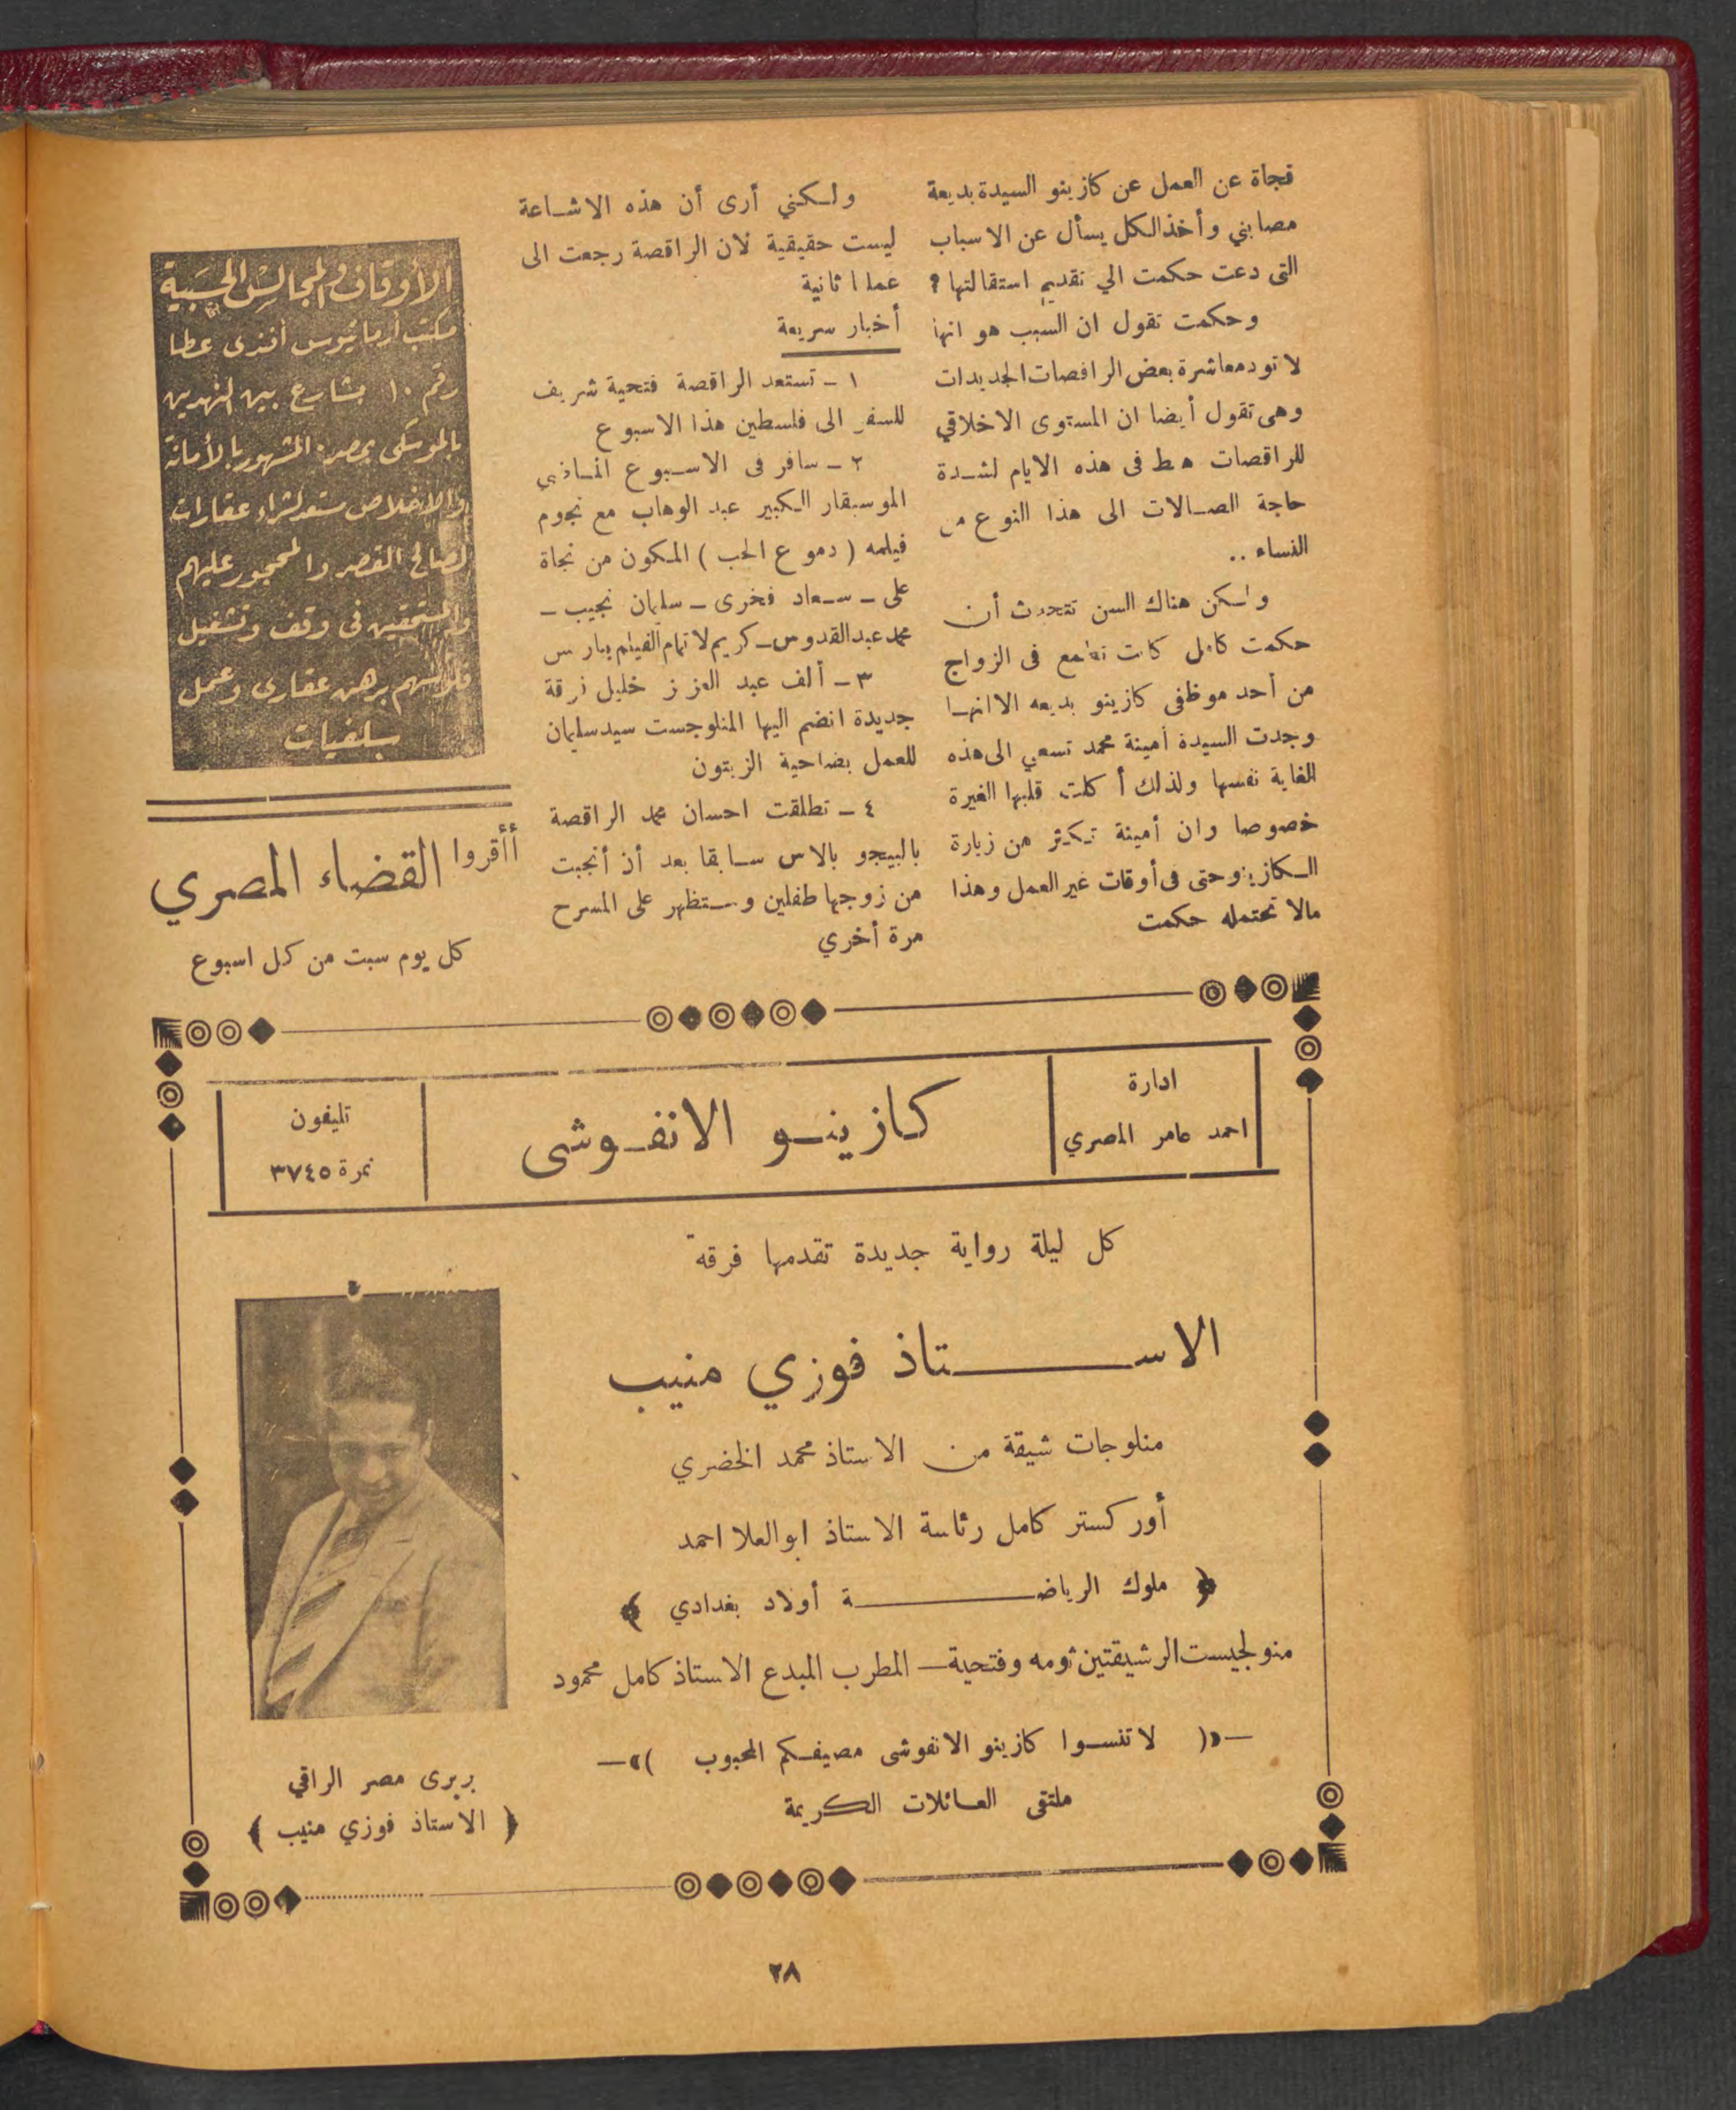 فجاة عن العمل عن كازينو السيدة بديعة
مصابني وأخذ الكل يسأل عن الاسباب
التى دعت حكمت الي تقديم استقالتها ؟
وحكمت تقول ان السبب هو انها
لا تود معاشرة بعض الراقصات الجديدات
وهى تقول أيضا ان المستوى الاخلاقي
للراقصات هبط فى هذه الايام لشدة
حاجة الصالات الى هذا النوع من
النساء ..
ولكن هناك السن تتحدث أن
حكمت كامل كانت تطمع فى الزواج
من أحد موظفى كازينو بديعه الا انها
وجدت السيدة أمينة محمد تسعي الى هذه
الغاية نفسها ولذلك أكلت قلبها الغيرة
خصوصا وان أمينة تكثر من زيارة
الكازينو حتى فى أوقات غير العمل وهذا
مالا تحتمله حكمت
ولكني أرى أن هذه الاشاعة
ليست حقيقية لان الراقصة رجعت الى
عملها ثانية
أخبار سريعة
١ ـ تستعد الراقصة فتحية شريف
للسفر الى فلسطين هذا الاسبوع
٢ ـ سافر فى الاسبوع الماضي
الموسيقار الكبير عبد الوهاب مع نجوم
فيلمه ( دموع الحب ) المكون من نجاة
على ـ سعاد فخرى ـ سليمان نجيب ـ
محمد عبد القدوس ـ كريم لاتمام الفيلم بباريس
٣ ـ ألف عبد العزيز خليل فرقة
جديدة انضم اليها المنلوجست سيد سليمان
للعمل بضاحية الزيتون
٤ ـ تطلقت احسان محمد الراقصة
بالبيجو بالاس سابقا بعد أن أنجبت
من زوجها طفلين وستظهر على المسرح
مرة أخري
الأوقاف والمجالس الحسبية
مكتب أرمانيوس أفندى عطا
رقم ١٠ بشارع بين النهدين
بالموسكى بمصر المشهور بالأمانة
والاخلاص مستعد لشراء عقارات
لصالح القصر والمحجور عليهم
والمستحقين فى وقف وتشغيل
فلوسهم برهن عقارى وعمل
سلفيات
أأقروا القضاء المصري
كل يوم سبت من كل اسبوع
ادارة
احمد عامر المصري
كازينو الانفوشى
تليفون
نمرة ٣٧٤٥
كل ليلة رواية جديدة تقدمها فرقة
الاستاذ فوزي منيب
منلوجات شيقة من الاستاذ محمد الخضري
أوركستر كامل رئاسة الاستاذ ابو العلا احمد
﴿ ملوك الرياضة أولاد بغدادي ﴾
منولجيست الرشيقتين ثومه وفتحية ـ المطرب المبدع الاستاذ كامل محمود
—«( لا تنسوا كازينو الانفوشى مصيفكم المحبوب )»—
ملتقى العائلات الكريمة
بربرى مصر الراقي
﴿ الاستاذ فوزي منيب ﴾
٢٨